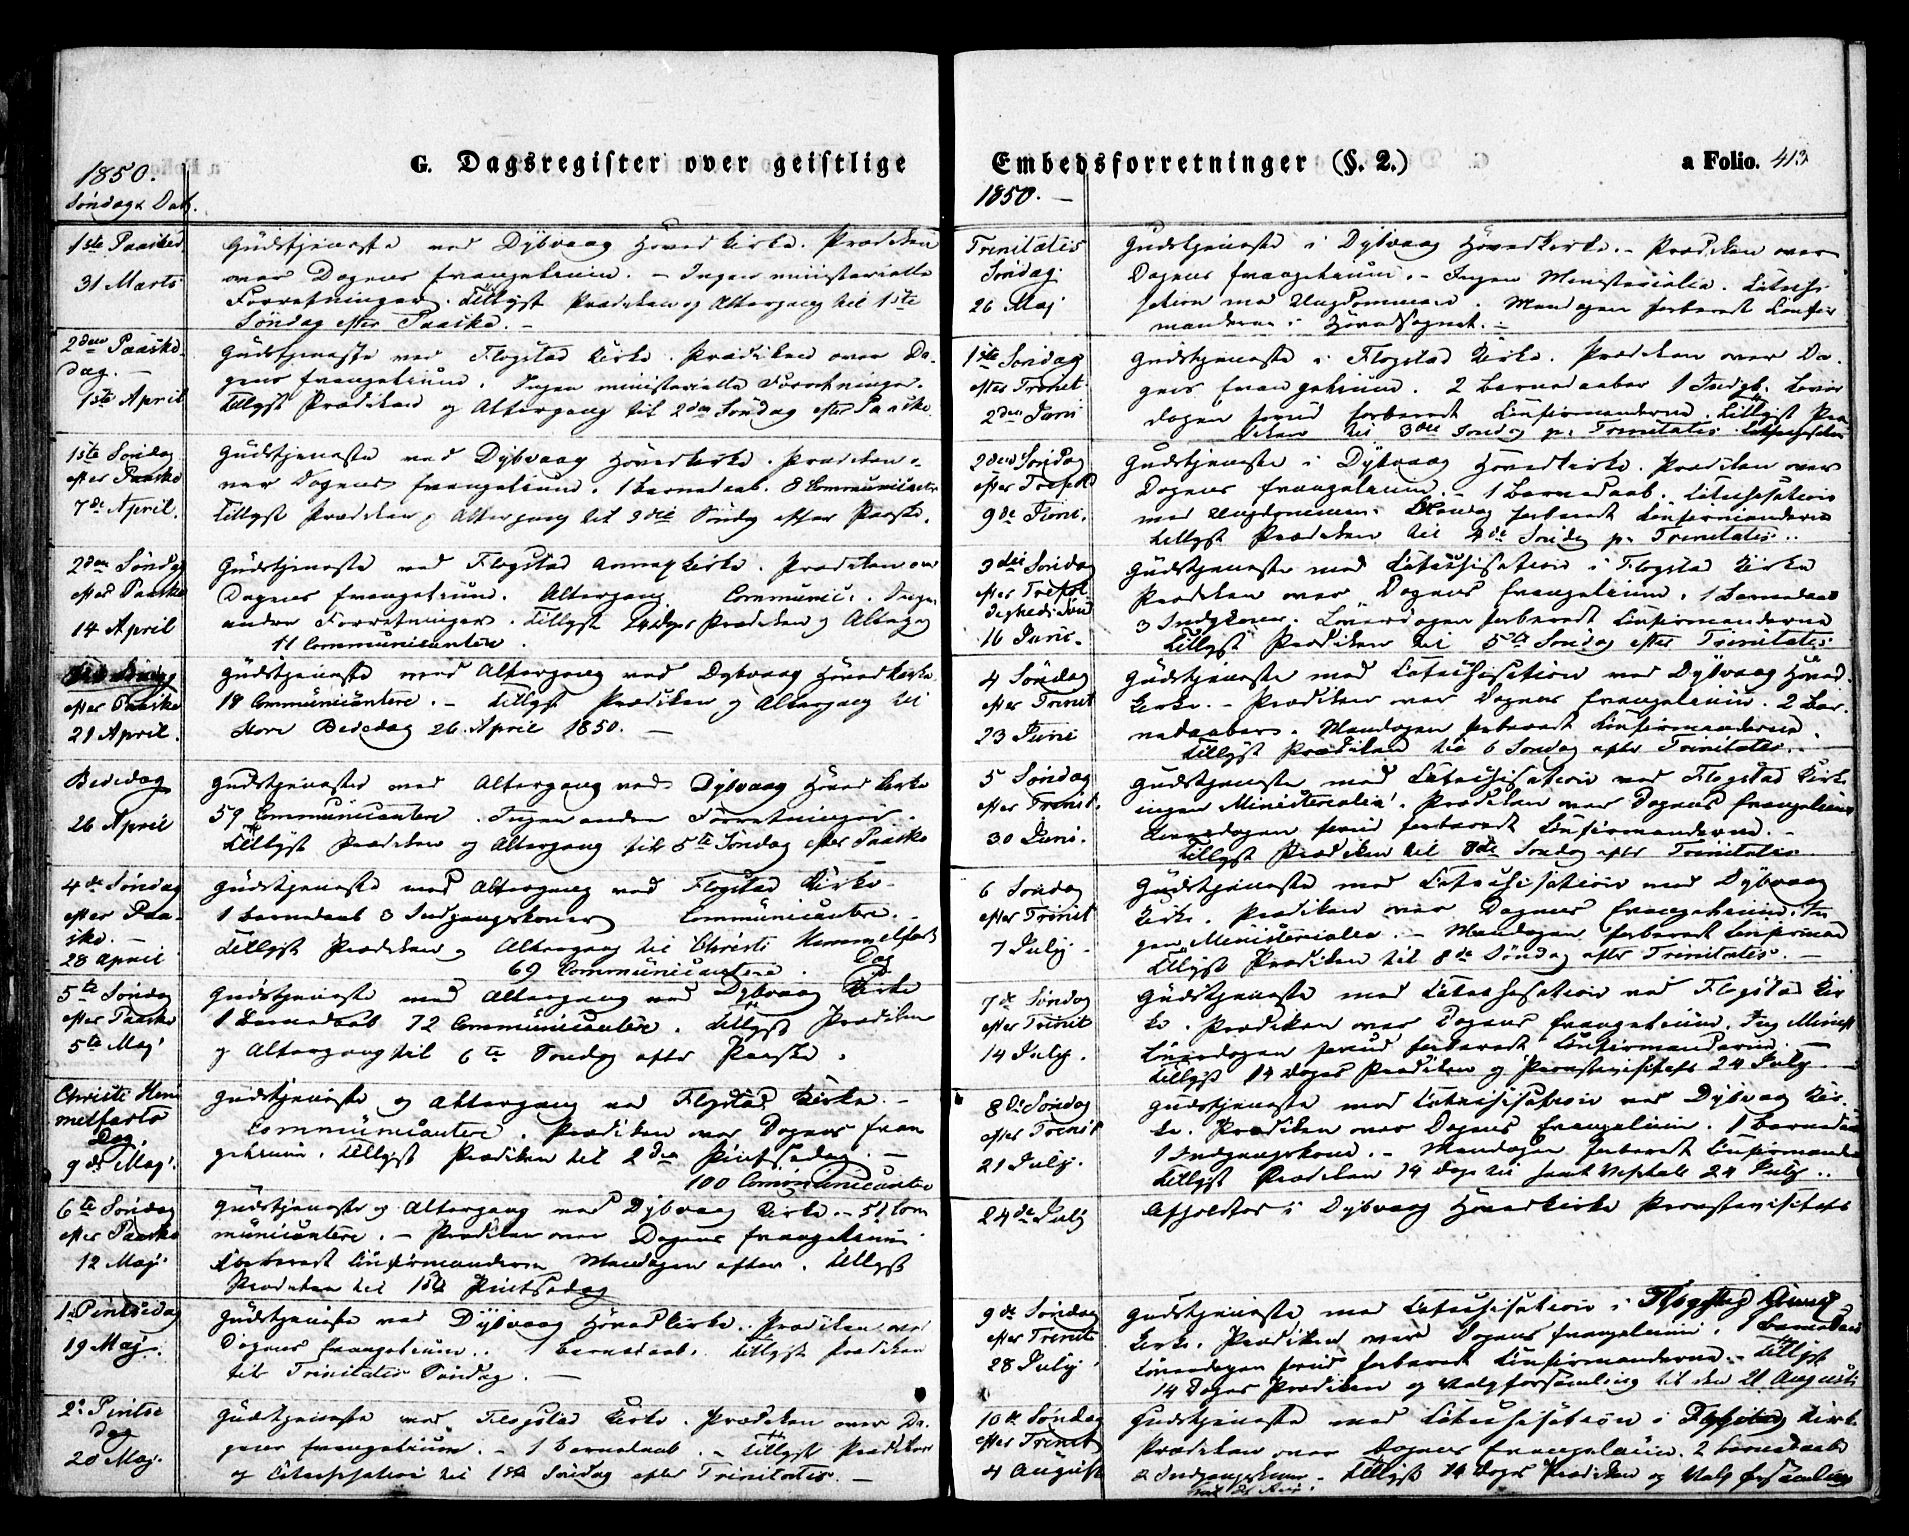 G. Dagsregister over geistlige
1850.
Søndag & Dat.
1ste Paasked.
31 Marts
Gudstjeneste ved Dybvaag Hovedkirke. Prædiken
over Dagens Evangelium. – Ingen ministerielle
Forretninger. Tillyst Prædiken og Altergang til 1ste
Søndag efter Paaske. –
2den Paaske-
dag. –
1ste April
Gudstjeneste ved Flogstad Kirke. Prædiken over Da-
gens Evangelium. Ingen ministerielle Forretninger.
Tillyst Prædiken og Altergang til 2den Søndag efter Paaske.
1ste Søndag
efter Paaske
7de April.
Gudstjeneste ved Dybvaag Hovedkirke. Prædiken o-
ver Dagens Evangelium. 1 Barnedaab. 8 Communicanter
Tillyst Prædiken og Altergang til 3die Søndg efter Paaske.
2den Søndg
efter Paaske
14 April
Gudstjeneste ved Flogstad Annexkirke. Prædiken over
Dagens Evangelium. Altergang. Communic. . Ingen
andre Forretninger. Tillyst 14 dges Prædiken og Alterg
11 Communicantere.
efter Paaske
21 April.
Gudstjeneste med Altergang ved Dybvaag Hovedkirke
18 Communicantere. – Tillyst Prædiken og Altergang til
Store Bededag 26 April 1850. –
Bededag
26 April
Gudstjeneste med Altergang ved Dybvaag Hovedkirke
59 Communicantere. Ingen andre Forretninger.
Tillyst Prædiken og Altergang til 5te Søndag efter Paaske
4de Søndag
efter Paa-
ske. –
28 April
Gudstjeneste med Altergang ved Flogstad Kirke.
1 Barnedaab 3 Indgangskoner Communicantere. –
Tillyst Prædiken og Altergang til Christi Himmelfarts
69 Communicantere. Dag
5te Søndag
efter Paaske
5te Maj
Gudstjeneste med Altergang ved Dybvaag Kirke
1 Barnedaab 72 Communicantere. Tillyst Prædiken
og Altergang til 6te Søndg efter Paaske.
Christi Him
melfarts
Dag.
9de Maj.
Gudstjeneste og Altergang ved Flogstad Kirke. –
Communicantere. Prædiken over Dagens Evan
gelium. Tillyst Prædiken til 2den Pintsedag. –
100 Communicantere
6te Søndag
efter Paaske
12 Maj.
Gudstjeneste og Altergang ved Dybvaag Kirke. – 51 Com
municantere. – Prædiken over Dagens Evangelium
Forberedt Confirmanderne Mandagen efter. Tillyst
Prædiken til 1ste Pintsedag
1 Pintsedag
19 Maj.
Gudstjeneste ved Dybvaag Hovedkirke. Prædiken over
Dagens Evangelium. 1 Barnedaab. Tillyst Prædiken
til Trinitatis Søndag. –
2. Pintse
dag
20 Maj.
Gudstjeneste ved Flogstad Kirke. Prædiken over Da-
gens Evangelium. – 1 Barnedaab. – Tillyst Prædiken
og Catechisation til 1ste Søndag efter Trinitatis. –
Embedsforretninger (§. 2.)
a Folio. 413
1850. –
Trinitatis
Søndag.
26 Maj
Gudstjeneste i Dybvaag Hovedkirke. – Prædiken over
Dagens Evangelium. – Ingen Ministerialia. Catechi-
sation med Ungdommen. Mandagen forberedt Confir
manderne i Hovedsognet. –
1ste Søndag
efter Trinit
2den Juni
Gudstjeneste i Flogstad Kirke. Prædiken over Da-
gens Evangelium. 2 Barnedaaber 1 Indgk. Løver
dagen forud forberedt Confirmanderne. Tillyst Præ
diken til 3die Søndag p. Trinitatis
2den Søndag
efter Trefold
9de Juni.
Gudstjeneste i Dybvaag Hovedkirke. Prædiken over
Dagens Evangelium. – 1 Barnedaab. Catechisation
med Ungdommen. Mandag forberedt Confirmanderne
Tillyst Prædiken til 4de Søndg p. Trinitatis..
3die Søndag
efter Trefol
digheds Sønd
16 Juni.
Gudstjeneste med Catechisation i Flogstad Kirke
Prædiken over Dagens Evangelium. 1 Barnedaab
3 Indgkoner. Løverdagen forberedt Confirmanderne
Tillyst Prædiken til 5te Søndag efter Trinitatis
4 Søndag
efter Trinit
23 Juni
Gudstjeneste med Catechisation ved Dybvaag Hoved-
kirke. – Prædiken over Dagens Evangelium. 2 Bar-
nedaaber. Mandagen forberedt Confirmanderne.
Tillyst Prædiken til 6 Søndag efter Trinitatis. –
5 Søndag
efter Trinit.
30 Juni.
Gudstjeneste med Catechisation ved Flogstad Kirke
ingen Ministerialia. Prædiken over Dagens Evangelium
Løverdagen forud forberedt Confirmanderne. –
Tillyst Prædiken til 8de Søndag efter Trinitatis
6 Søndag
efter Trinit
7 July.
Gudstjeneste med Catechisation ved Dybvaag
Kirke. Prædiken over Dagens Evangelium. In
gen Ministerialia. – Mandagen forberedt Confirmand
Tillyst Prædiken til 8de Søndag efter Trinitatis. –
7de Søndag
efter Trinit
14 July.
Gudstjeneste med Catechisation ved Flogstad Kir
ke. Prædiken over Dagens Evangelium. Ing Minist
Løverdagen forud forberedt Confirmanderne. –
Tillyst 14 Dages Prædiken og Provstevisitats 24 July. –
8de Søndag
efter Trinit
21 July.
Gudstjeneste med Catechisation ved Dybvaag Kir-
ke. Prædiken over Dagens Evangelium. 1 Barnedaab
1 Indgangskone. – Mandagen forberedt Confirmande
Tillyst Prædiken 14 Dage til samt Visitats 24 July..
24de July
Afholdtes i Dybvaag Hovedkirke Provstevisitats
9de Søndag
efter Trinit
28 July
Gudstjeneste med Catechisation i Flogstad Annex
Kirke. Prædiken over Dagens Evangelium. 1 Barnedaab
Løverdagen forud forberedt Confirmanderne. – Tillyst
14 Dages Prædiken og Valgforsamling til den 21 Augusti
10de Søndag
efter Trinit
4 August
Gudstjeneste med Catechisation i Kirke
Prædiken over Dagens Evangelium. 2 Barnedaabe
2 Indgangskoner – Tillyst 14 Dages Prædiken og Valgforsamling